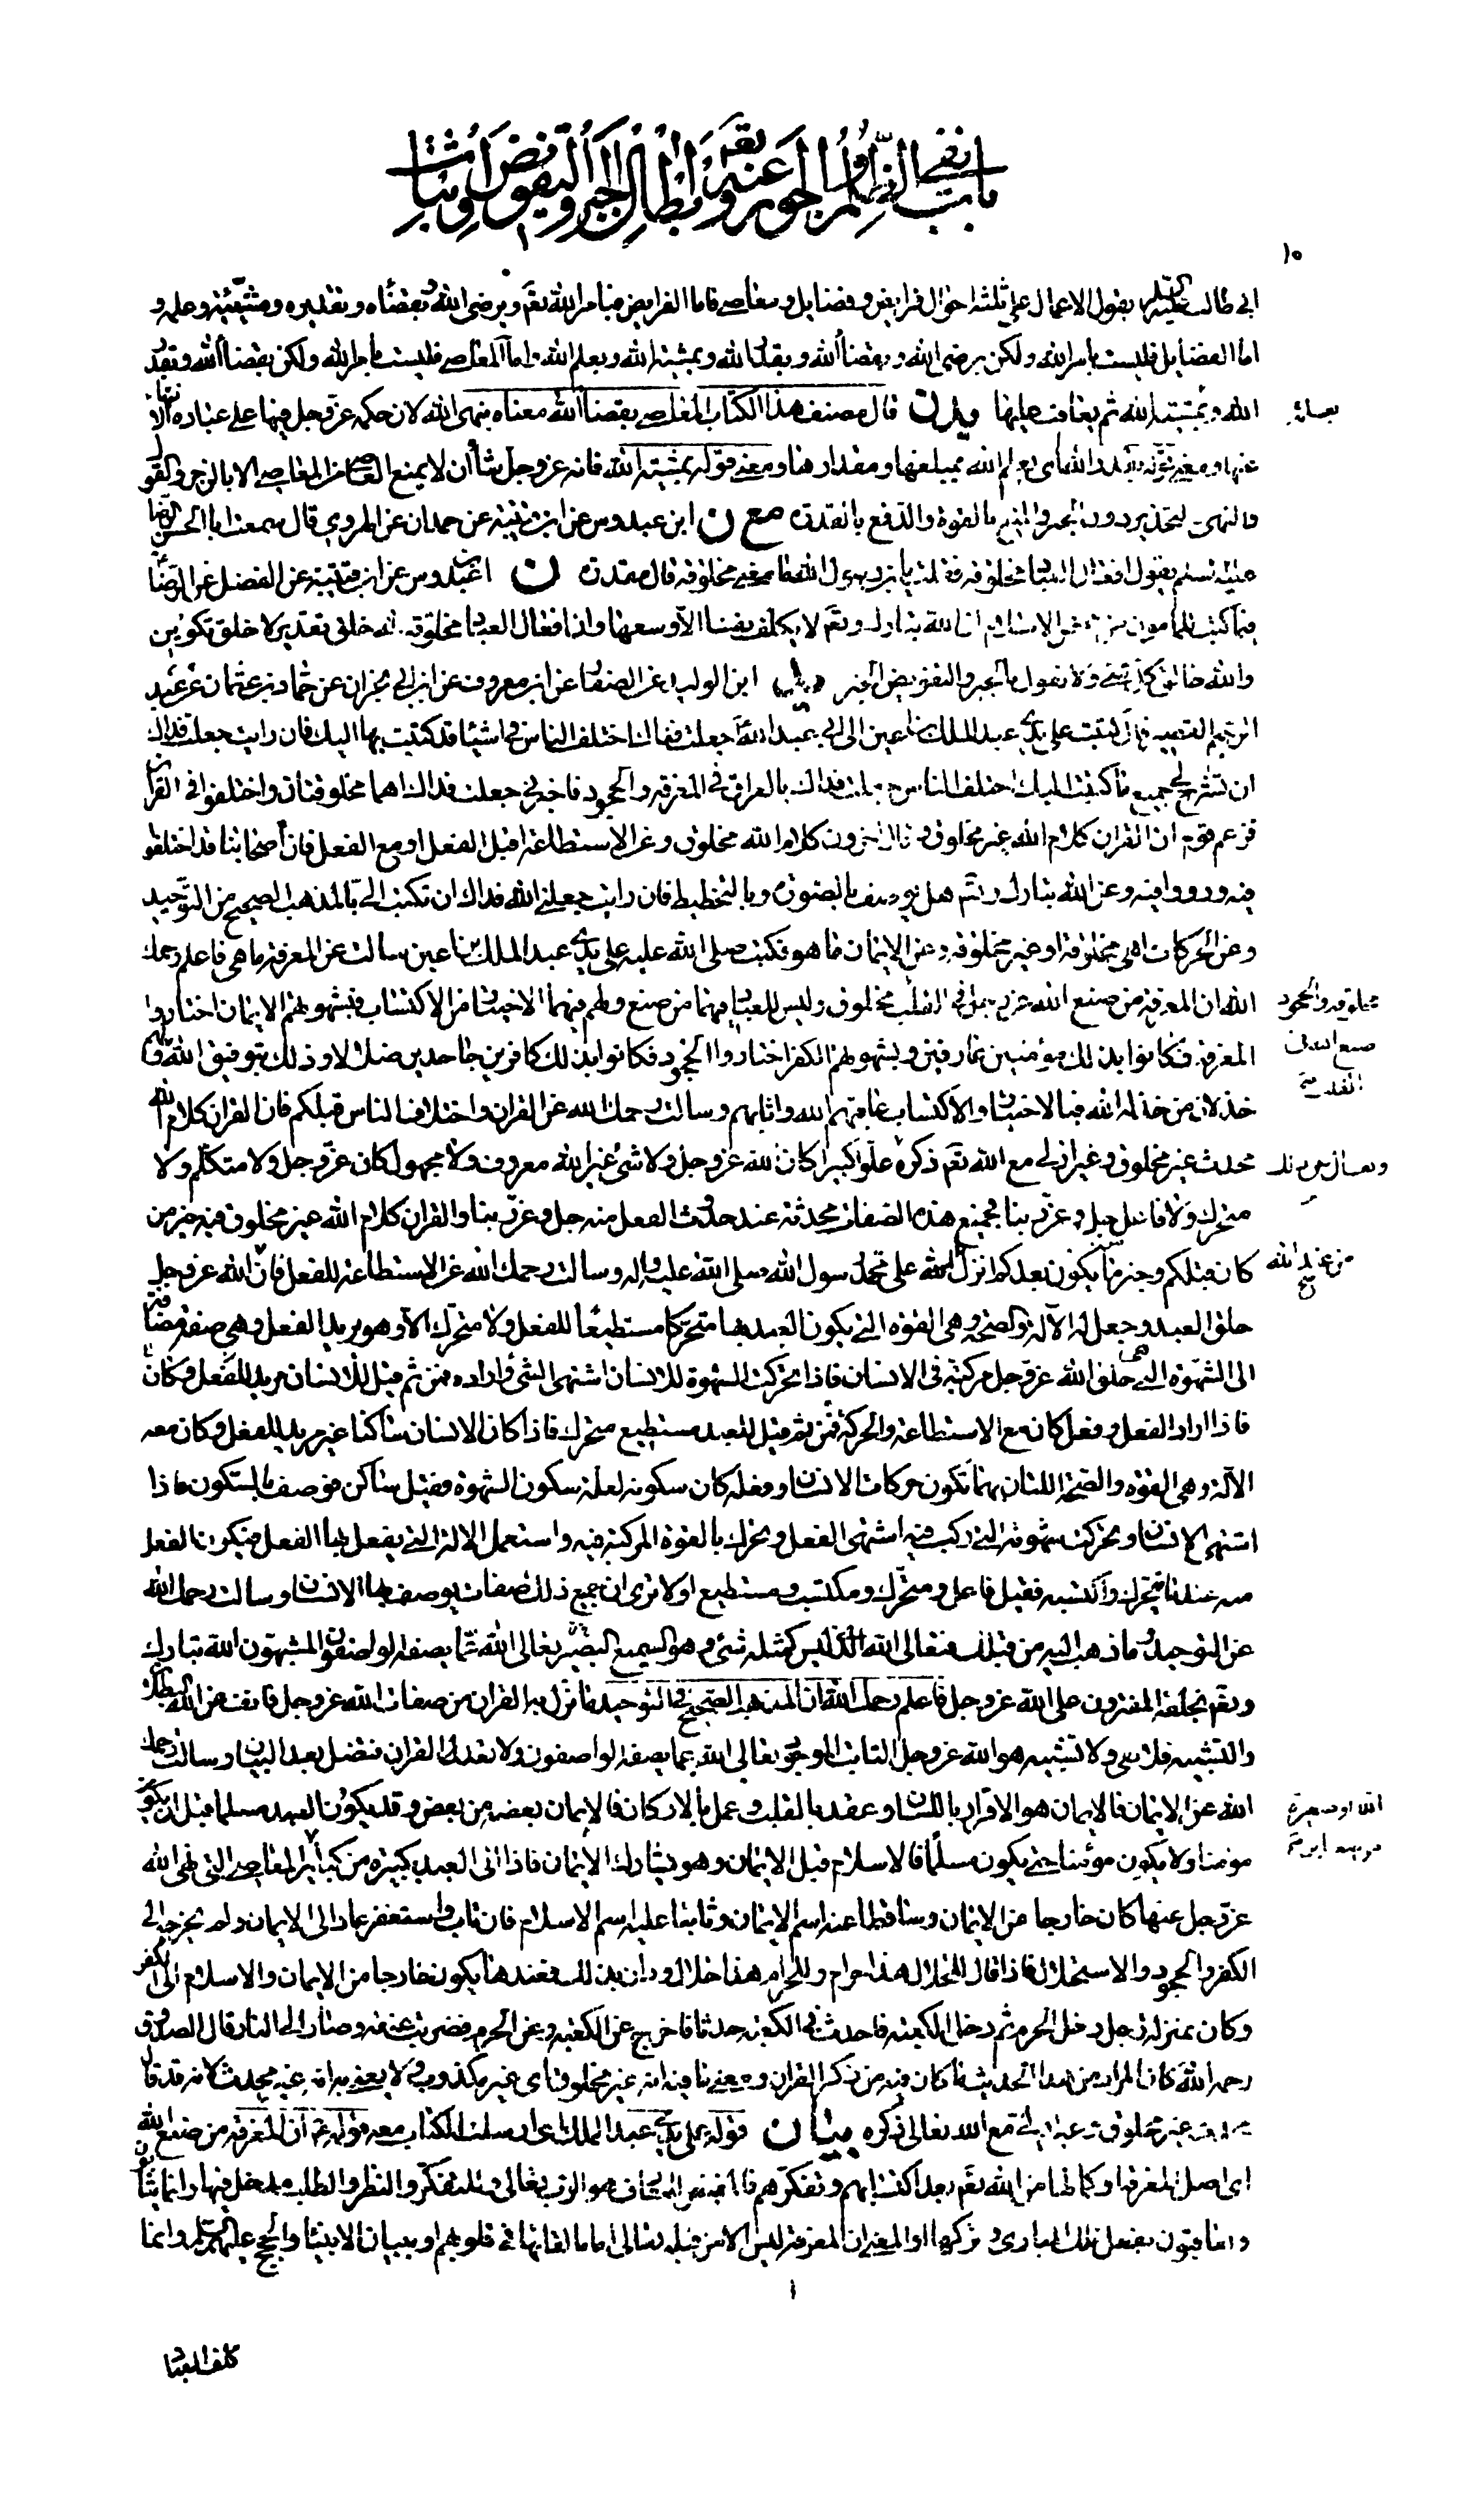 باب نفي الظلم والجور عنه تعالى وابطال الجبر والتفويض واثبات
١٥
ابي طالب عليه السلام يقول الاعمال على ثلثة احوال فرايض وفضايل ومعاصي فاما الفرايض فبامر الله تعم وبرضى الله وبقضاء الله وتقديره ومشيئته وعلمه و
اما الفضايل فليست بامر الله ولكن برضى الله وبقضاء الله وبقدر الله وبمشية الله وبعلم الله واما المعاصي فليست بامر الله ولكن بقضاء الله وبقدر
الله وبمشية الله ثم يعاقب عليها قال مصنف هذا الكتاب المعاصي بقضاء الله معناه بنهي الله لان حكمه عز وجل فيها على عباده الانتهاء
عنها ومعنى قوله بقدر الله اي بعلم الله بمبلغها ومقدارها ومعنى قوله بمشية الله فانه عز وجل شاء ان لا يمنع العاصي من المعاصي الا بالزجر والقول
والنهي والتحذير دون الجبر والمنع بالقوة والدفع بالقدرة مع ن ابن عبدوس عن ابن قتيبة عن حمدان عن الهروي قال سمعت ابا الحسن الرضا
عليه السلم يقول افعال العباد مخلوقة فقلت يا بن رسول الله ما معنى مخلوقة قال مقدرة ن ابن عبدوس عن ابن قتيبة عن الفضل عن الرضا
فيما كتب للمامون من محض الاسلام ان الله تبارك وتعم لا يكلف نفسا الا وسعها وان افعال العباد مخلوقة لله خلق تقدير لا خلق تكوين
والله خالق كل شيء ولا نقول بالجبر والتفويض الخبر يد ابن الوليد عن الصفار عن ابن معروف عن ابن ابي نجران عن حماد بن عثمان عن عبد
الرحيم القصير قال كتبت على يدي عبد الملك بن اعين الى ابي عبد الله جعلت فداك اختلف الناس في اشياء قد كتبت بها اليك فان رايت جعلت فداك
ان تشرح لي جميع ما كتبت اليك اختلف الناس جعلت فداك بالعراق في المعرفة والجحود فاخبرني جعلت فداك اهما مخلوقتان واختلفوا في القرآن
فزعم قوم ان القران كلام الله غير مخلوق وقال اخرون كلام الله مخلوق وعن الاستطاعة اقبل الفعل او مع الفعل فان اصحابنا قد اختلفوا
فيه ورووا فيه وعن الله تبارك وتعم هل يوصف بالصورة وبالتخطيط فان رايت جعلني الله فداك ان تكتب الي بالمذهب الصحيح من التوحيد
وعن الحركات اهي مخلوقة او غير مخلوقة وعن الايمان ما هو فكتب صلى الله عليه على يدي عبد الملك بن اعين سالت عن المعرفة ما هي فاعلم رحمك
الله ان المعرفة من صنع الله عز وجل في القلب مخلوق وليس للعباد فيهما من صنع ولهم فيهما الاختيار من الاكتساب فبشهوتهم الايمان اختاروا
المعرفة فكانوا بذلك مؤمنين عارفين وبشهوتهم الكفر اختاروا الجحود فكانوا بذلك كافرين جاحدين ضلالا وذلك بتوفيق الله لهم و
خذلان من خذله الله فبالاختيار والاكتساب عاقبهم الله واثابهم وسالت رحمك الله عن القران واختلاف الناس قبلكم فان القران كلام الله
محدث غير مخلوق وغير ازلي مع الله تعم ذكره علوا كبيرا كان الله عز وجل ولا شيء غير الله معروف ولا مجهول كان عز وجل ولا متكلم ولا
متحرك ولا فاعل جل وعز ربنا فجميع هذه الصفات محدثة عند حدوث الفعل منه جل وعز ربنا والقران كلام الله غير مخلوق فيه خبر من
كان قبلكم وخبر ما يكون بعدكم انزل الله على محمد رسول الله صلى الله عليه واله وسالت رحمك الله عن الاستطاعة للفعل فان الله عز وجل
خلق العبد وجعل له الآلة والصحة وهي القوة التي يكون العبد بها متحركا مستطيعا للفعل ولا متحرك الا وهو يريد الفعل وهي صفة مضافة
الى الشهوة التي هي خلق الله عز وجل مركبة في الانسان فاذا تحركت الشهوة للانسان اشتهى الشيء واراده فمن ثم قيل للانسان مريد للفعل وكان
فاذا اراد الفعل وفعل كان مع الاستطاعة والحركة فمن ثم قيل للعبد مستطيع متحرك فاذا كان الانسان ساكنا غير مريد للفعل وكان معه
الآلة وهي القوة والصحة اللتان بهما تكون حركات الانسان وفعله كان سكونه لعلة سكون الشهوة فقيل ساكن فوصف بالسكون فاذا
اشتهى الانسان وتحركت شهوته التي ركبت فيه اشتهى الفعل وتحرك بالقوة المركبة فيه واستعمل الالة التي يفعل بها الفعل فيكون الفعل
منه عندما تحرك واكتسبه فقيل فاعل ومتحرك ومكتسب ومستطيع اولا ترى ان جميع ذلك صفات يوصف بها الانسان وسالت رحمك الله
عن التوحيد وما ذهب اليه من قبلك فتعالى الله الذي ليس كمثله شيء وهو السميع البصير تعالى الله عما يصفه الواصفون المشبهون الله تبارك
وتعم بخلقه المفترون على الله عز وجل فاعلم رحمك الله ان المذهب الصحيح في التوحيد ما نزل به القران من صفات الله عز وجل فانف عن الله البطلان
والتشبيه فلا نفي ولا تشبيه هو الله عز وجل الثابت الموجود تعالى الله عما يصفه الواصفون ولا تعد القران فتضل بعد البيان وسالت رحمك
الله عن الايمان فالايمان هو الاقرار باللسان وعقد بالقلب وعمل بالاركان فالايمان بعضه من بعض وقد يكون العبد مسلما قبل ان يكون
مومنا ولا يكون مؤمنا حتى يكون مسلما فالاسلام قبل الايمان وهو يشارك الايمان فاذا اتى العبد بكبيرة من كبائر المعاصي التي نهى الله
عز وجل عنها كان خارجا من الايمان وساقطا عنه اسم الايمان وثابتا عليه اسم الاسلام فان تاب واستغفر عاد الى الايمان ولم يخرجه الى
الكفر الجحود والاستحلال فاذا قال للحلال هذا حرام وللحرام هذا حلال ودان بذلك فعندها يكون خارجا من الايمان والاسلام الى الكفر
وكان بمنزلة رجل دخل الحرم ثم دخل الكعبة فاحدث في الكعبة حدثا فاخرج عن الكعبة وعن الحرم فضربت عنقه وصار الى النار قال الصدوق
رحمه الله كان المراد من هذا الحديث ما كان فيه من ذكر القران ومعنى ما فيه انه غير مخلوق اي غير مكذوب ولا يعني به انه غير محدث لانه قد قال
محدث غير مخلوق وغير ازلي مع الله تعالى ذكره بيان قوله على يدي عبد الملك اي ارسلت الكتاب معه قوله ع ان المعرفة من صنع الله
اي اصل المعرفة او كمالها من الله تعم بعد اكتسابهم وتفكرهم
كلف العباد
من عند الله